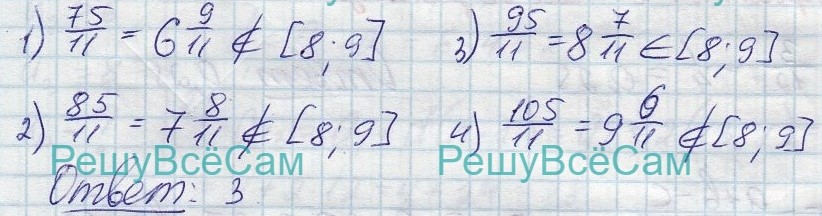 1) 75/11 = 6 9/11 ∉ [8; 9]
3) 95/11 = 8 7/11 ∈ [8; 9]
2) 85/11 = 7 8/11 ∉ [8; 9]
4) 105/11 = 9 6/11 ∉ [8; 9]
РешуВсёСам РешуВсёСам
Ответ: 3